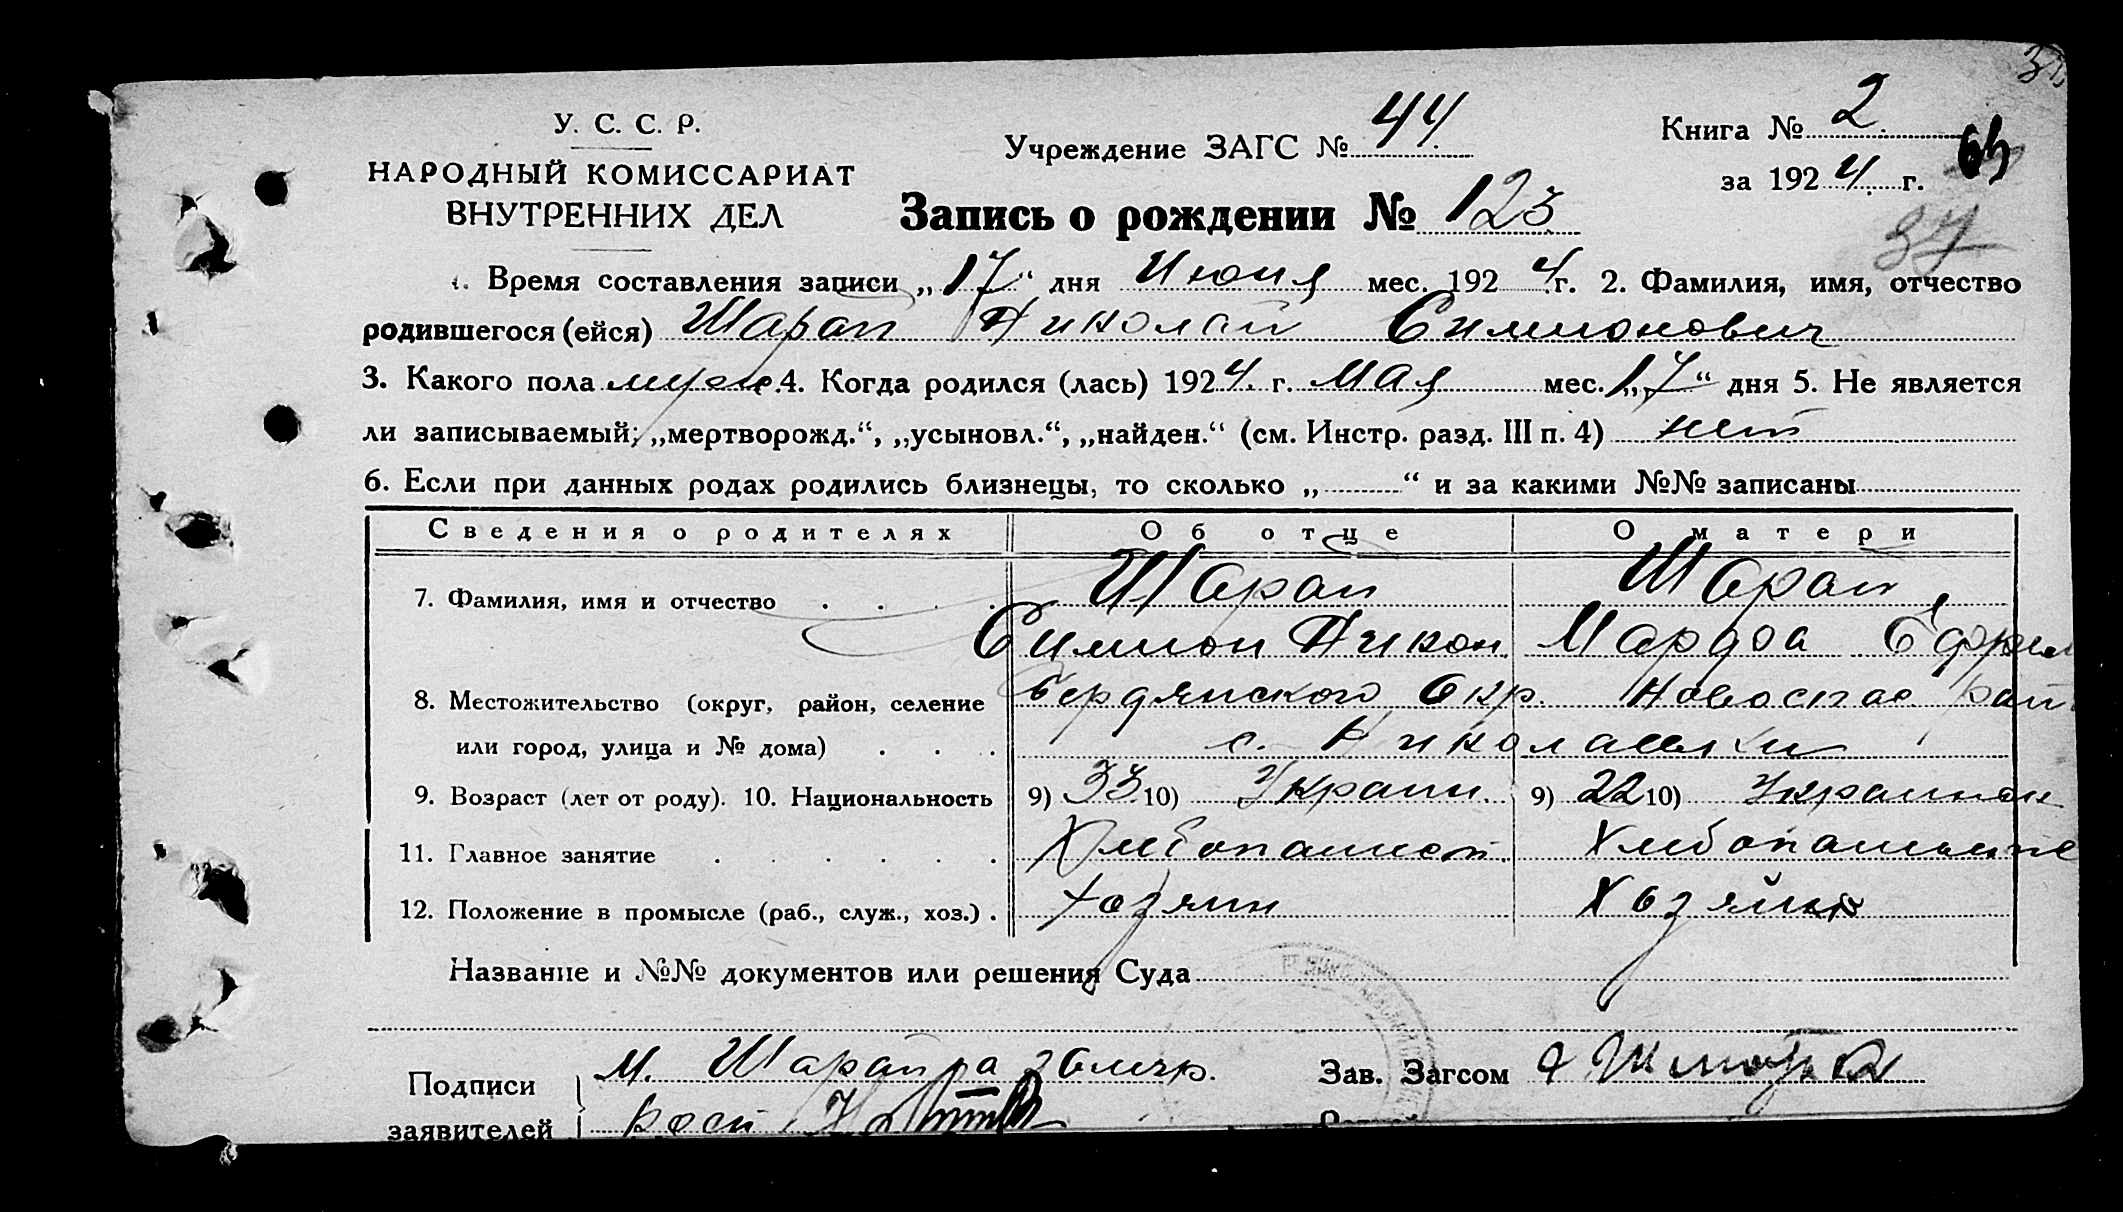 У. С. С. Р.
НАРОДНЫЙ КОМИССАРИАТ
ВНУТРЕННИХ ДЕЛ
Учреждение ЗАГС № 44.
Книга № 2.
за 1924. г.
Запись о рождении № 123
37
1. Время составления записи „17“ дня Июня мес. 1924 г. 2. Фамилия, имя, отчество
родившегося (ейся) Шарап Николай Симионович
3. Какого пола муж. 4. Когда родился (лась) 1924. г. Мая мес. „17“ дня 5. Не является
ли записываемый; „мертворожд.“, „усыновл.“, „найден.“ (см. Инстр. разд. III п. 4) нет
6. Если при данных родах родились близнецы, то сколько „ “ и за какими №№ записаны
Сведения о родителях Об отце О матери
7. Фамилия, имя и отчество Шарап Шарап
Симион Никон Марфа Ефрем
8. Местожительство (округ, район, селение Бердянского Окр. Новоспас рай
или город, улица и № дома) с. Николаевки
9. Возраст (лет от роду). 10. Национальность 9) 33 10) Украин. 9) 22 10) Украинск
11. Главное занятие Хлибопашест. Хлибопашест
12. Положение в промысле (раб., служ., хоз.) Хозяин Хозяйка
Название и №№ документов или решения Суда
Подписи М. Шарап Зав. Загсом
заявителей